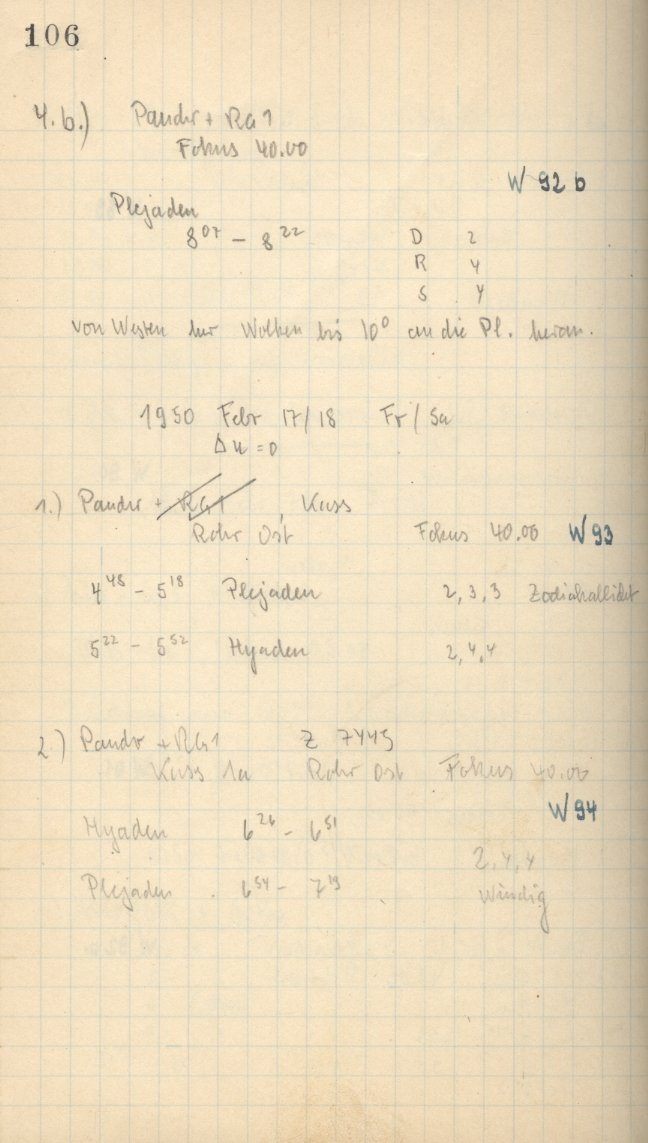 106
4.b.) Pandr + RG1
Fokus 40.00
W 92 b
Plejaden
8 07 – 8 22 D 2
R 4
S 4
von Westen her Wolken bis 10° an die Pl. heran.
1950 Febr 17/18 Fr / Sa
Δu = 0
1.) Pandr + RG1 , Kass
Rohr Ost Fokus 40.00 W 93
4 48 – 5 18 Plejaden 2, 3, 3 Zodiakallicht
5 22 – 5 52 Hyaden 2, 4, 4
2.) Pandr + RG1 Z 7445
Kass 1a Rohr Ost Fokus 40.00
W 94
Hyaden 6 26 – 6 51
2, 4, 4
Plejaden 6 54 – 7 19
Windig